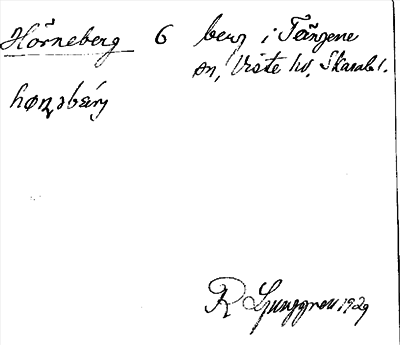 Hörneberg 6 berg i Tängene
sn, Viste hd, Skarab l.
R Ljunggren 1929